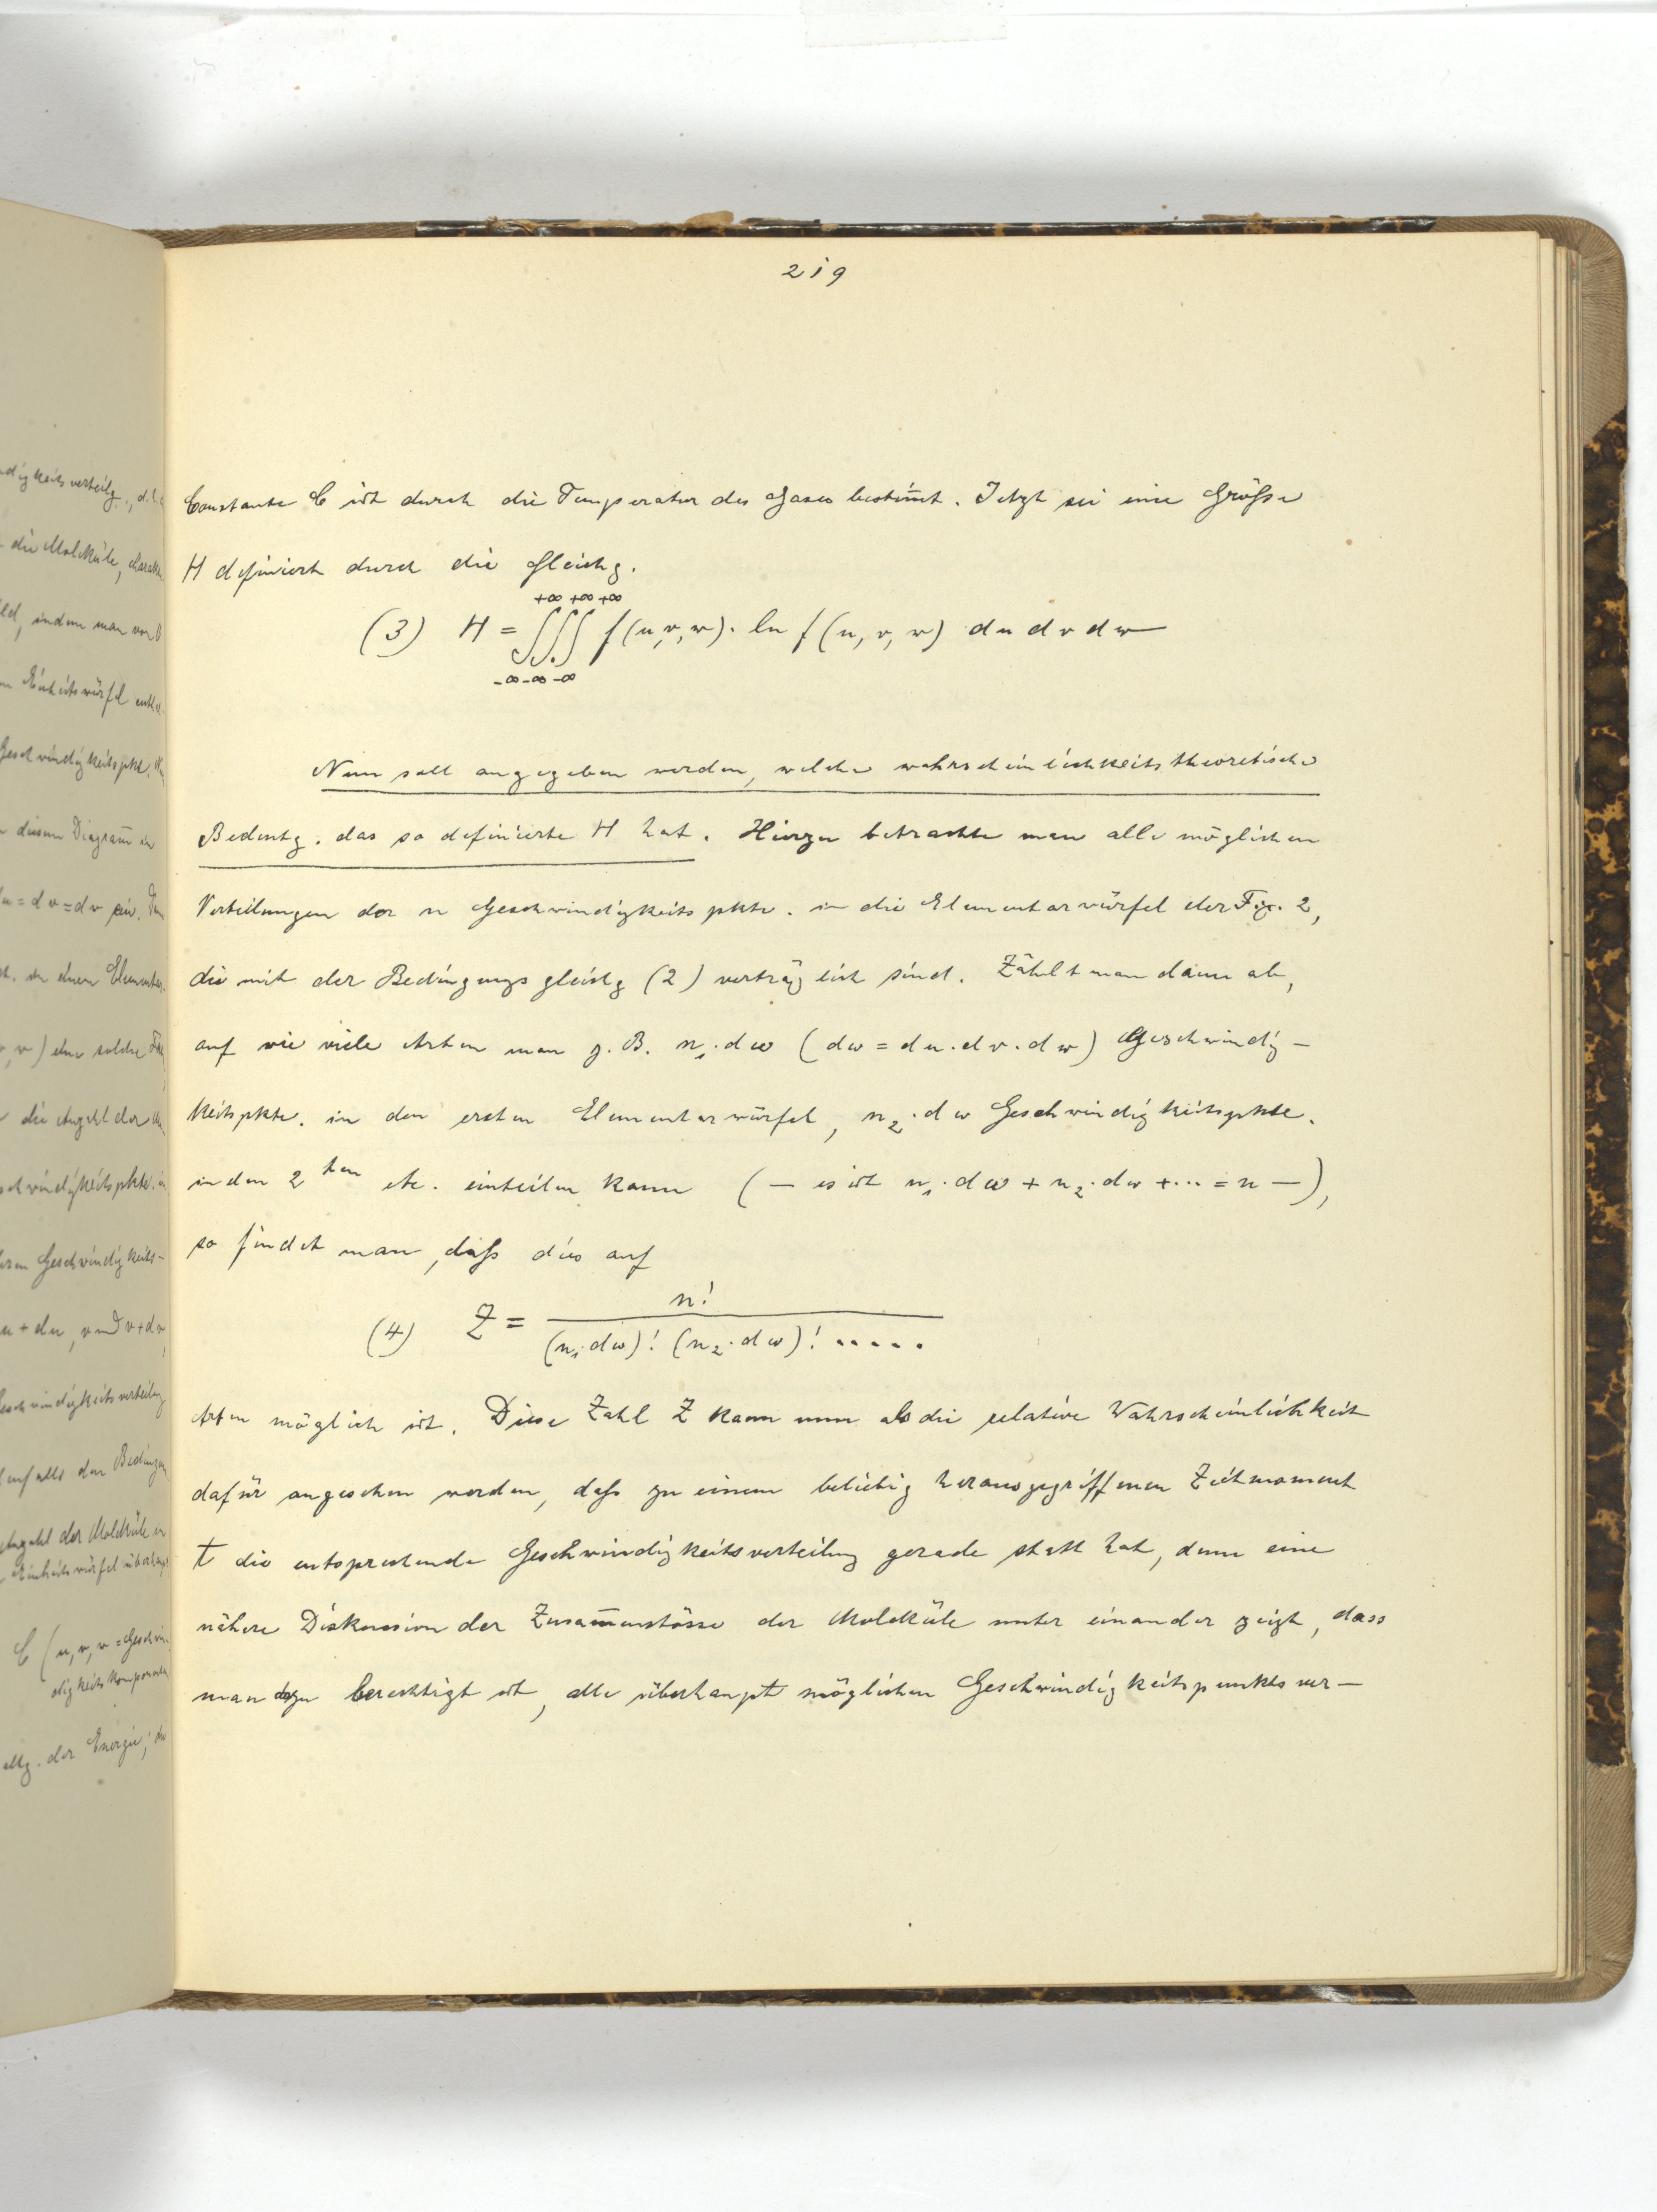 219
Constante C ist durch die Temperatur des Gases bestim̅t. Jetzt sei eine Größe
H definiert durch die Gleichg.
+∞ +∞ +∞
(3) H = ∫∫∫ f(u,v,w). ln f(u, v, w) du dv dw
-∞ -∞ -∞
Nun soll angegeben werden, welche wahrscheinlichkeitstheoretische
Bedeutg. das so definierte H hat. Hierzu betrachte man alle möglichen
Verteilungen der n Geschwindigkeitspkte. in die Elementarwürfel der Fig. 2,
die mit der Bedingungsgleichg (2) verträglich sind. Zählt man dann ab,
auf wie viele Arten man z. B. n₁.dω (dω = du.dv.dw) Geschwindig-
keitspkte. in den ersten Elementarwürfel, n₂.dω Geschwindigkeitspkte.
in den 2ten etc. einteilen kann (— es ist n₁.dω + n₂.dω + ... = n —),
so findet man, daß dies auf
(4) Z = n! / (n₁.dω)! (n₂.dω)! .....
Arten möglich ist. Diese Zahl Z kann nun als die relative Wahrscheinlichkeit
dafür angesehen werden, daß zu einem beliebig herausgegriffenen Zeitmoment
t die entsprechende Geschwindigkeitsverteilung gerade statt hat, denn eine
nähere Diskussion der Zusam̅enstösse der Moleküle unter einander zeigt, dass
man dazu berechtigt ist, alle überhaupt möglichen Geschwindigkeitspunktsver-